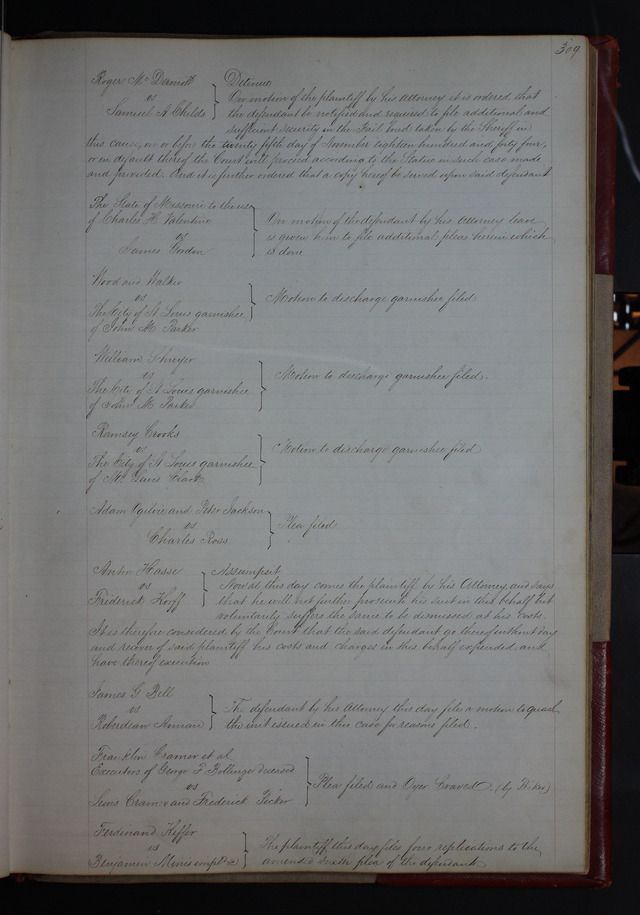 309
Roger Mc Dermott
vs
Samuel A Childs
Detinue
On motion of the plaintiff by his Attorney it is ordered that
the defendant be notified and required to file additional and
sufficient security in the Bail bond taken by the Sheriff in
this cause, on or before the twenty fifth day of November eighteen hundred and forty four,
or in default thereof the Court will proceed according to the Statue in such case made
and provided. And it is further ordered that a copy hereof be served upon said defendant
The State of Missouri to the use
of Charles H. Valentine
vs
James Gordon
On motion of the defendant by his Attorney leave
is given him to file additional pleas herein which
is done
Wood and Walker
vs
The City of St Louis garnishee
of John M. Parker
Motion to discharge garnishee filed
William Schreyer
vs
The City of St Louis garnishee
of John M. Parker
Motion to discharge garnishee filed.
Ramsey Crooks
vs
The City of St Louis garnishee
of Clark
Motion to discharge garnishee filed
Adam Ogilvie and Peter Jackson
vs
Charles Ross
Plea filed
Hasse
vs
Frederick
Assumpsit
Now at this day comes the plaintiff by his Attorney, and says
that he will not further prosecute his suit in this behalf but
voluntarily suffers the same to be dismissed at his Costs.
It is therefore considered by the Court that the said defendant go thereof without day
and recover of said plaintiff his costs and charges in this behalf expended, and
have thereof execution
James G. Bell
vs
The defendant by his Attorney this day files a motion to quash
the writ issued in this case for reasons filed.
Franklin Cramer et al
Executors of George F. Bollinger deceased
vs
Cramer and Frederick
Plea filed and Oyer Craved.
Ferdinand
vs
Benjamin
The plaintiff this day files four replications to the
amended sixth plea of the defendant